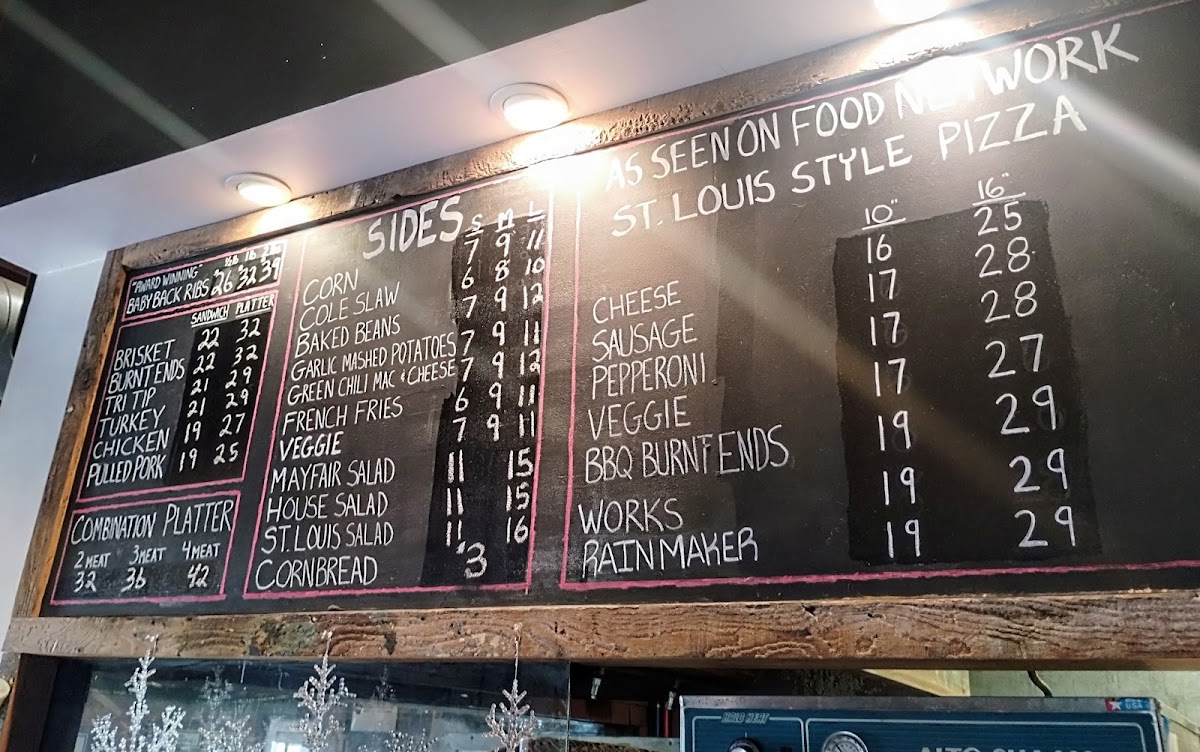 "AWARD WINNING"
BABY BACK RIBS 26 32 39
SANDWICH PLATTER
BRISKET 22 32
BURNT ENDS 22 32
TRI TIP 21 29
TURKEY 21 29
CHICKEN 19 27
PULLED PORK 19 25
COMBINATION PLATTER
2 MEAT 3 MEAT 4 MEAT
32 36 42
SIDES S M L
CORN 7 9 11
COLE SLAW 6 8 10
BAKED BEANS 7 9 12
GARLIC MASHED POTATOES 7 9 11
GREEN CHILI MAC & CHEESE 7 9 12
FRENCH FRIES 6 9 11
VEGGIE 7 9 11
MAYFAIR SALAD 11 15
HOUSE SALAD 11 15
ST. LOUIS SALAD 11 16
CORNBREAD $3
AS SEEN ON FOOD NETWORK
ST. LOUIS STYLE PIZZA
10" 16"
CHEESE 16 25
SAUSAGE 17 28
PEPPERONI 17 28
VEGGIE 17 27
BBQ BURNT ENDS 19 29
WORKS 19 29
RAINMAKER 19 29
HALO HEAT
USA